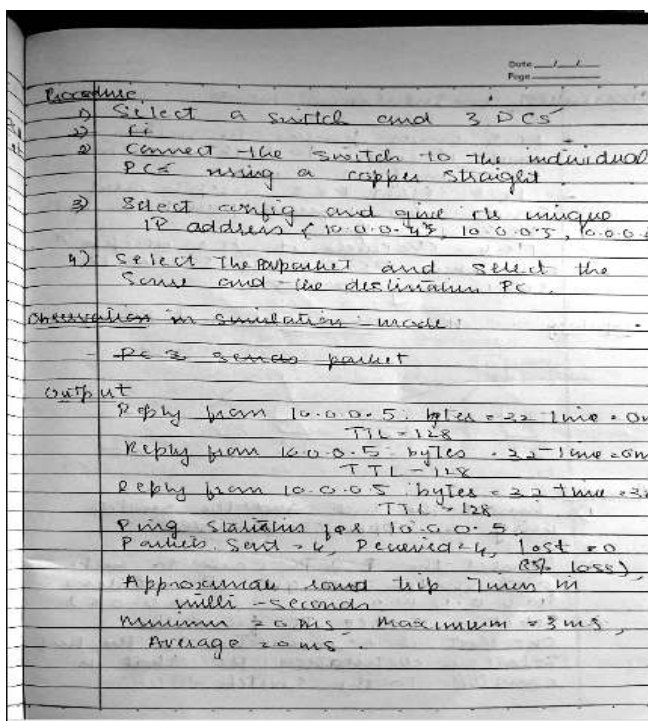 Date __/__/__
Page
Procedure
1) Select a switch and 3 PCs
2)
2) Connect the switch to the individual
PCs using a copper straight.
3) Select config and give the unique
IP address (10.0.0.4, 10.0.0.5, 10.0.0.
4) Select the packet and select the
Source and the destination PC.
Observation in simulation mode
- PC 3 sends packet
Output
Reply from 10.0.0.5: bytes = 32 time = 0m
TTL = 128
Reply from 10.0.0.5 bytes = 32 time = 0m
TTL = 128
Reply from 10.0.0.5 bytes = 32 time = 3
TTL = 128
Ping statistics for 10.0.0.5
Packets: Sent = 4, Received = 4, lost = 0
loss),
Approximate round trip times in
milli-seconds
Minimum = 0 ms Maximum = 3 ms,
Average = 0 ms.